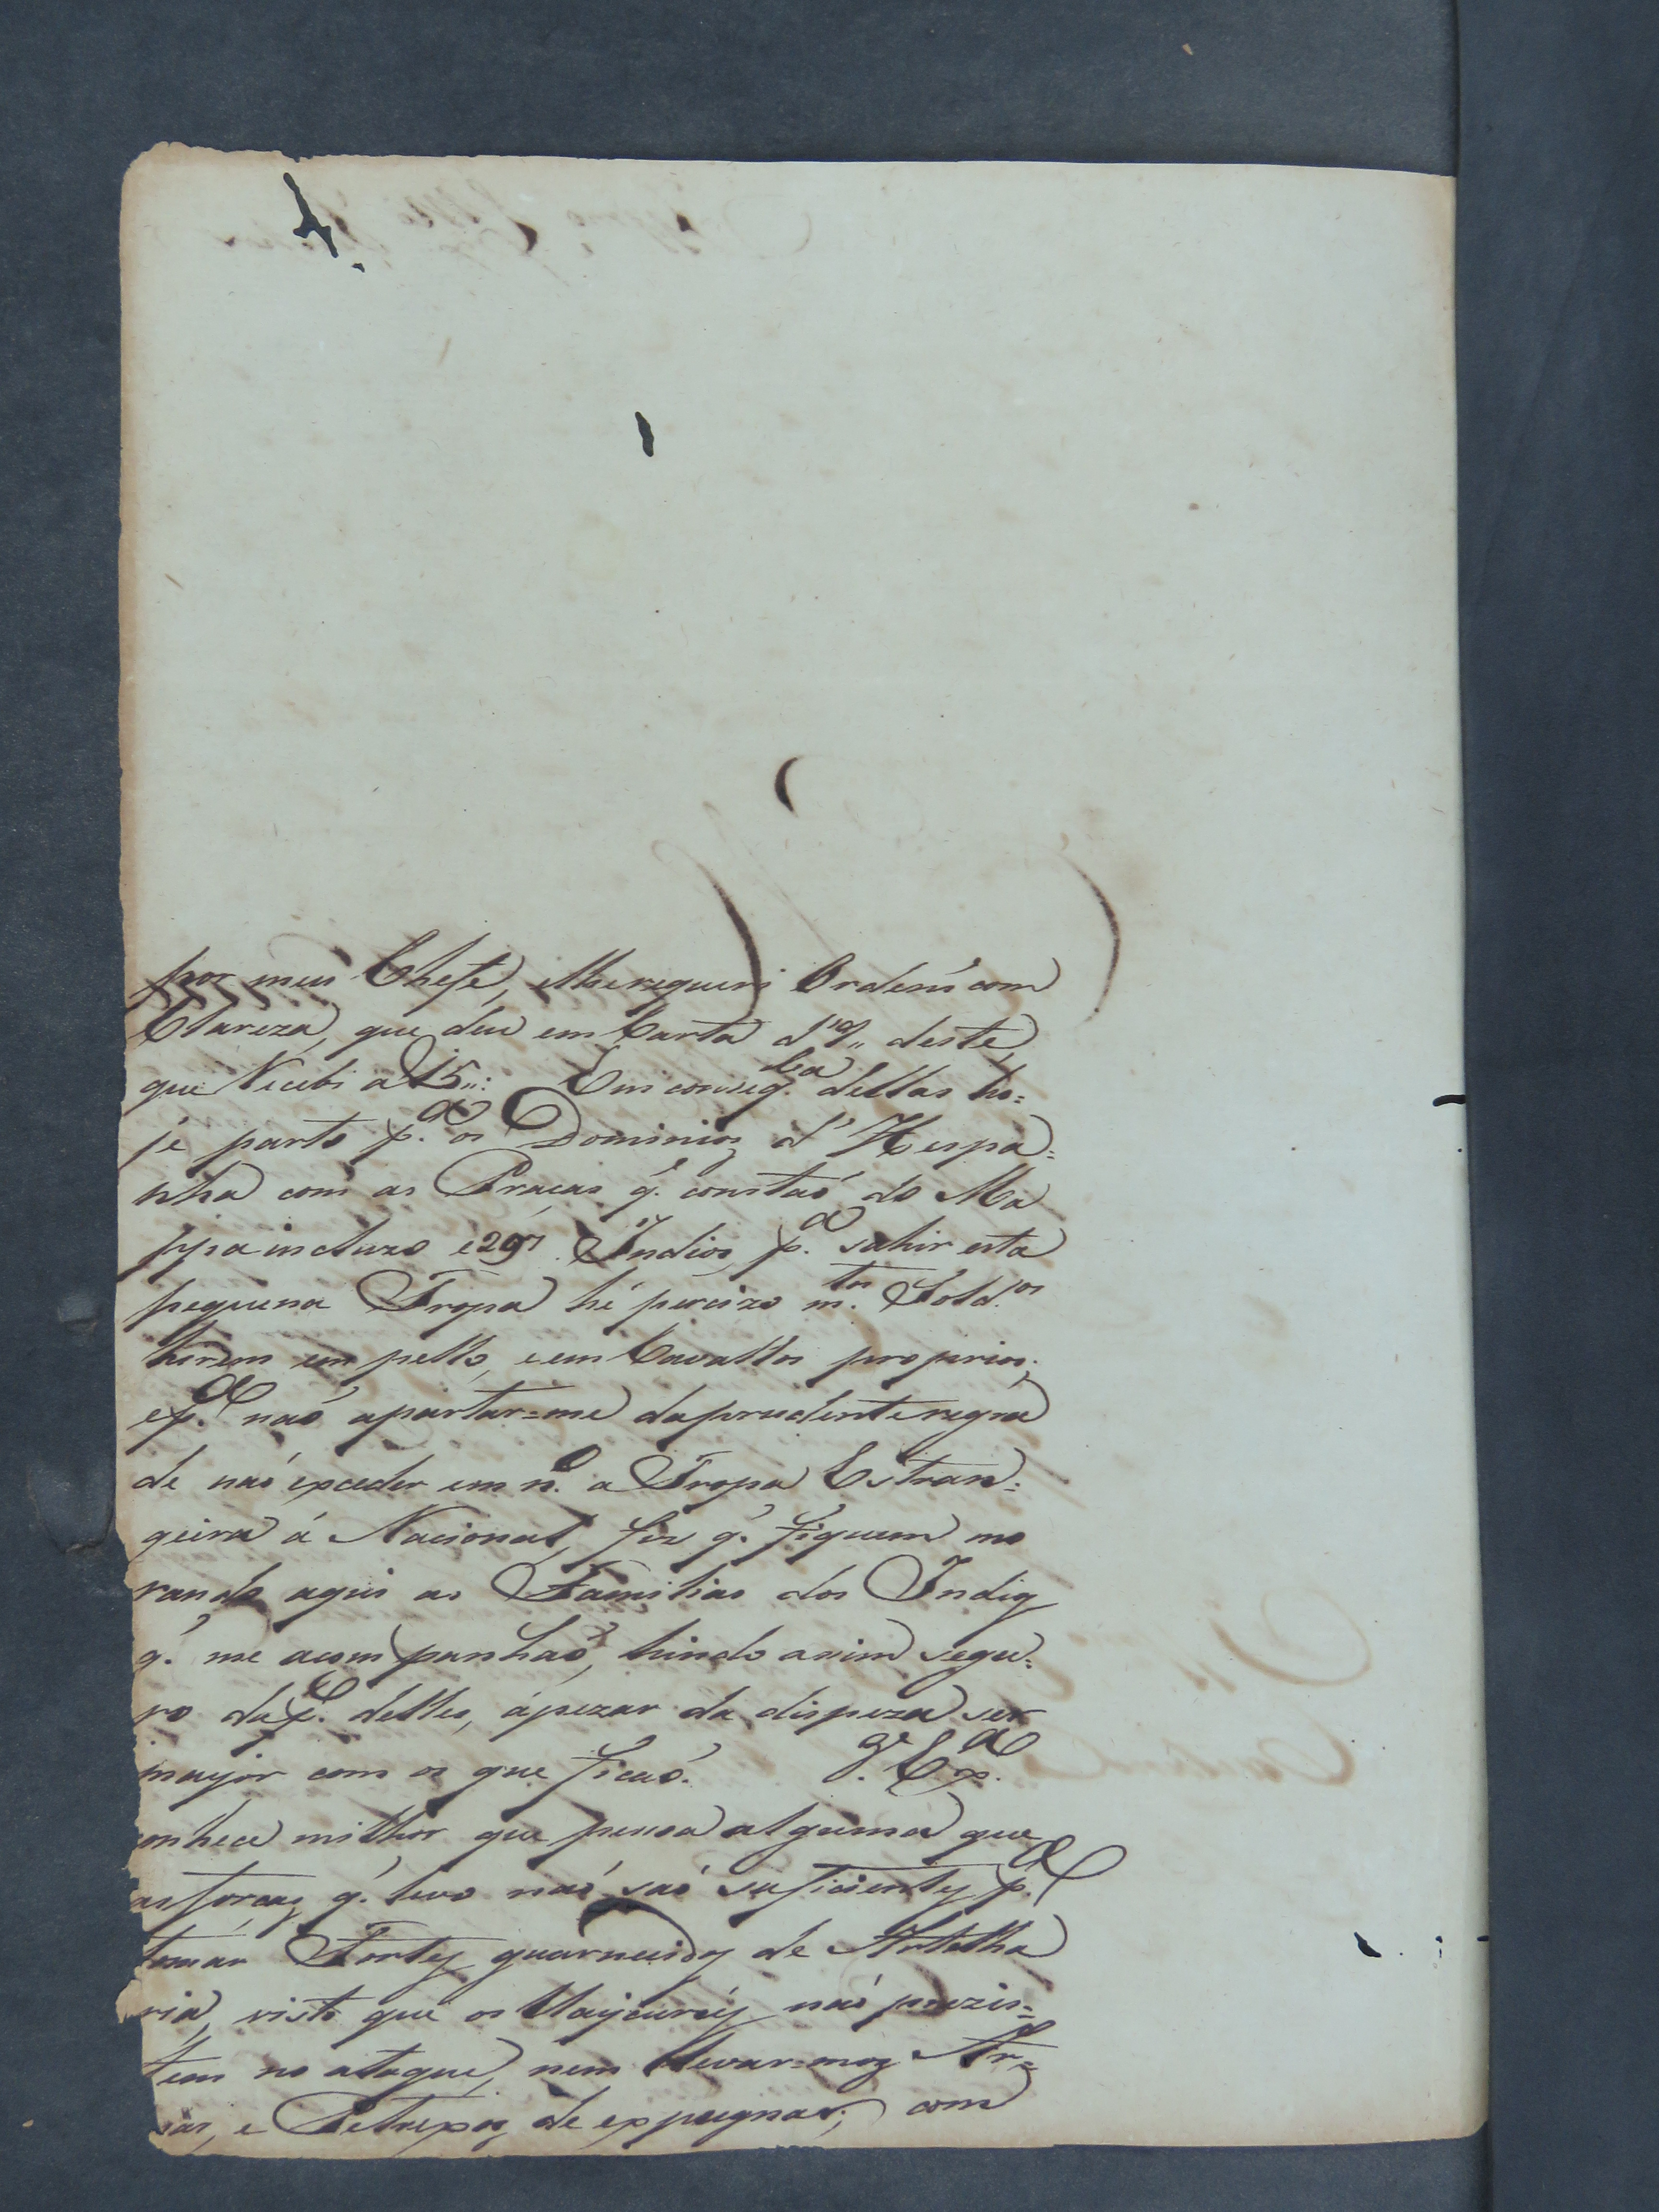 por meu Chefe, elhe requeri Ordens com
Clareza, que deu em Carta d' 9,, deste,
que Recebi a 15,,: Em conseq.cia dellas ho=
je parto p.a os Dominios d' Hespa=
nha com as Pracas q. constaó do Ma
ppa incluzo e 297 Indios, p.a sahir esta
pequena Tropa hé percizo m.tos Sold.os
hirem em pello, e em Cavallos proprios;
e p.a naó apartar=me da prudente regra
de naó exceder em n.o a Tropa Estran=
geira á Nacional, fiz q. fiquem mo
rando aqui as Familias dos Indios
q. me acompanhaó, hindo assim segu=
ro da f.e delles, ápezar da dispeza ser
mayor com os que ficaó. V. Ex.a
conhece milhor que pessoa alguma que
as forcas q. levo naó saó suficientes p.a
tomar Fortes guarnecidos de Artelha
ria, visto que os Uaycurús naó prezis=
tem no ataque, nem levar=mos Ar=
mas, e Petrexos de expugnar; com